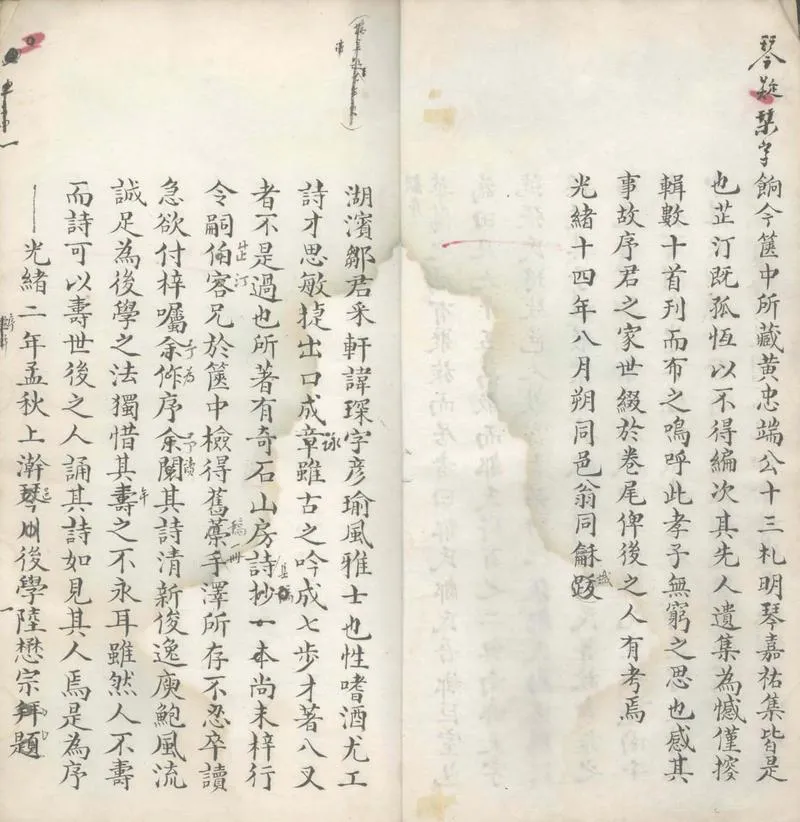 琴疑琹字
餉今篋中所藏黄忠端公十三札明琴嘉祐集皆是
也芷汀既孤恆以不得編次其先人遺集為憾僅搜
輯數十首刊而布之嗚呼此孝子無窮之思也感其
事故序君之家世綴於卷尾俾後之人有考焉
光緒十四年八月朔同邑翁同龢跋
湖濱鄒君釆軒諱琛字彦瑜風雅士也性嗜酒尤工
詩才思敏捷出口成章雖古之吟成七步才著八叉
詠
者不是過也所著有奇石山房詩抄一本尚未梓行
令嗣伯容兄於篋中檢得舊藁手澤所存不忍卒讀
芷汀
稿
急欲付梓囑余作序余閱其詩清新俊逸庾鮑風流
予為
予讀
誠足為後學之法獨惜其壽之不永耳雖然人不壽
年
而詩可以壽世後之人誦其詩如見其人焉是為序
光緒二年孟秋上澣琴川後學陸懋宗拜題